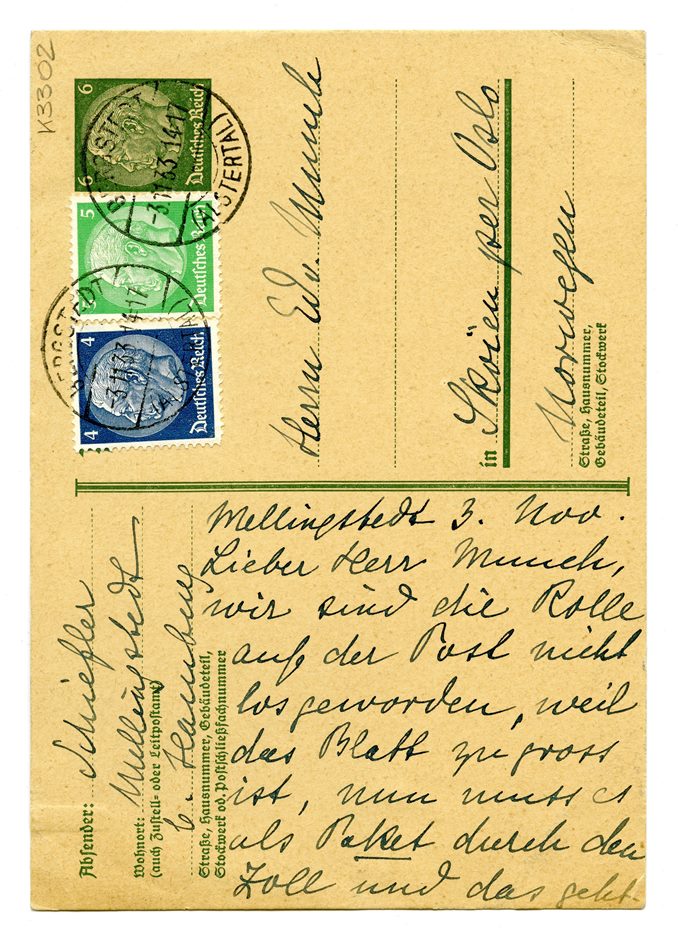 K3302
6 Deutsches Reich 6
5 Deutsches Reich
4 Deutsches Reich 4
BERGSTEDT
-3.11.33.14-17
(ALSTERTAL)
BERGSTEDT
-3.11.33.14-17
(ALSTERTAL)
Herrn Edv. Munch
in Skøien per Oslo
Norwegen
Straße, Hausnummer,
Gebäudeteil, Stockwerk
Absender: Schiefler
Wohnort: Mellingstedt
(auch Zustell- oder Leitpostamt)
b. Hamburg
Straße, Hausnummer, Gebäudeteil,
Stockwerk od. Postschließfachnummer
Mellingstedt 3. Nov.
Lieber Herr Munch,
wir sind die Rolle
auf der Post nicht
losgeworden, weil
das Blatt zu gross
ist, nun muss es
als Paket durch den
Zoll und das geht